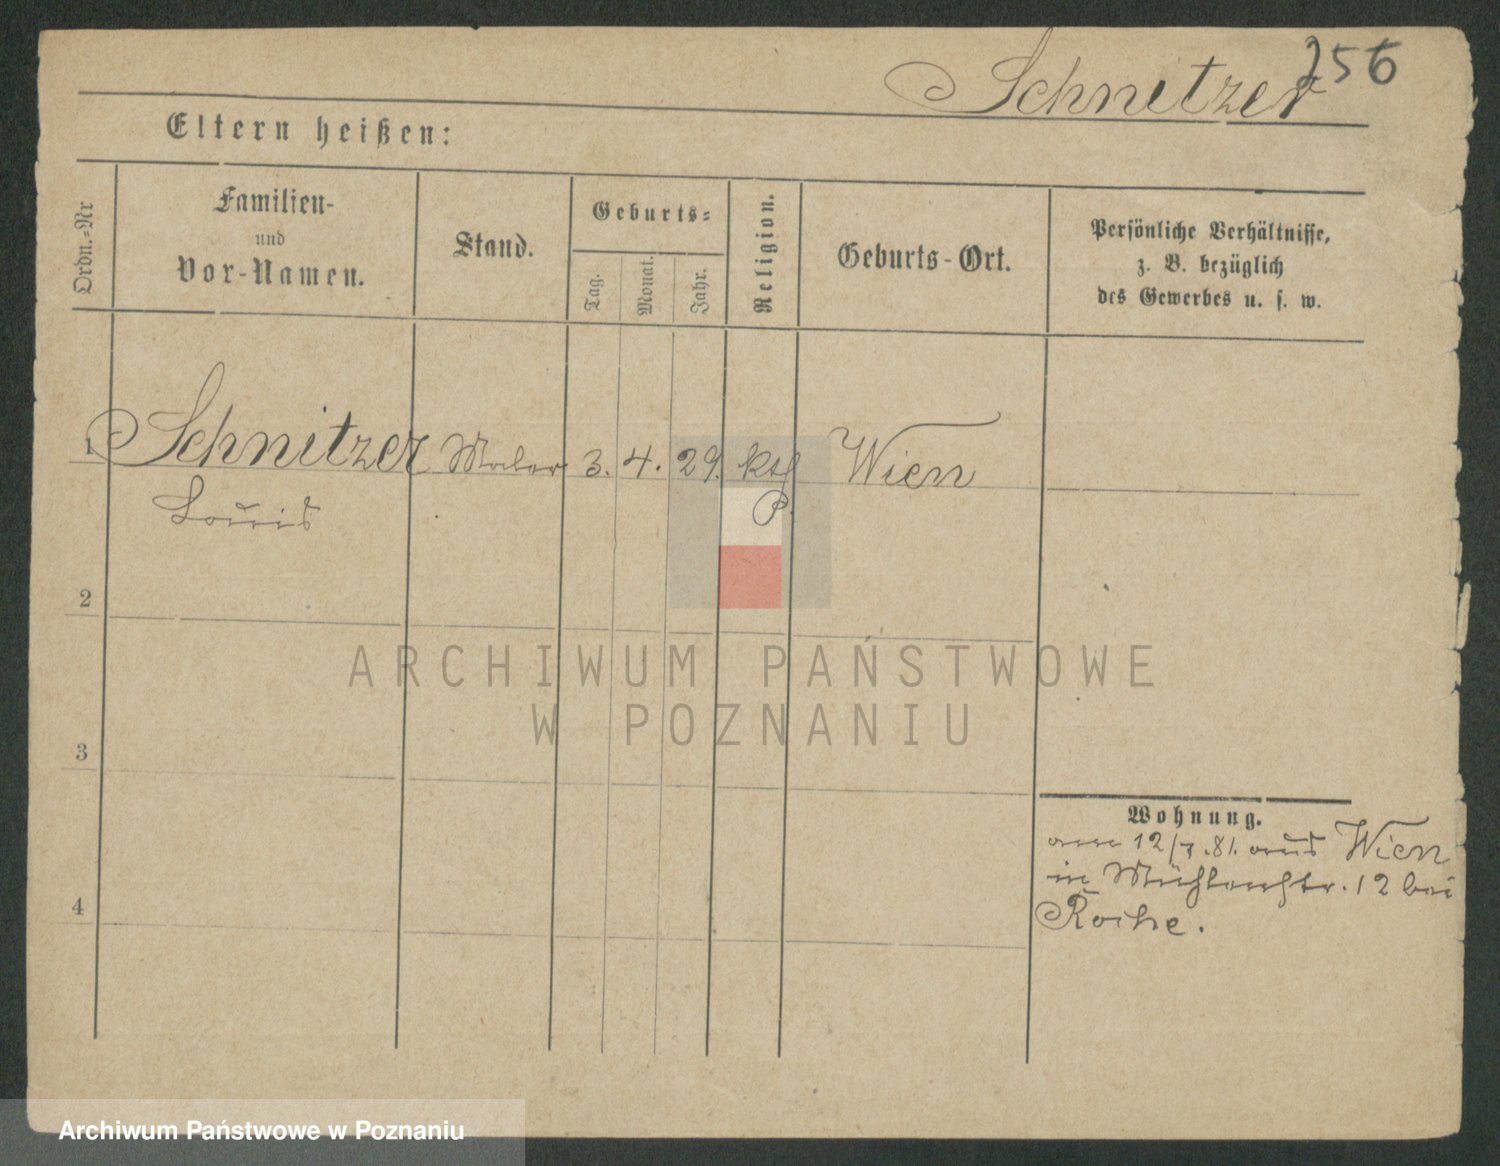 256
Schnitzer
Eltern heißen:
Ordn.=Nr
Familien-
und
Vor-Namen.
Stand.
Geburts=
Tag.
Monat.
Jahr.
Religion.
Geburts-Ort.
Persönliche Verhältnisse,
z. B. bezüglich
des Gewerbes u. s. w.
1 Schnitzer Maler 3. 4. 29. kth Wien
Louis P.
2
3
4
ARCHIWUM PAŃSTWOWE
W POZNANIU
Wohnung.
am 12/7.81. aus Wien
in Mühlenstr. 12 bei
Archiwum Państwowe w Poznaniu